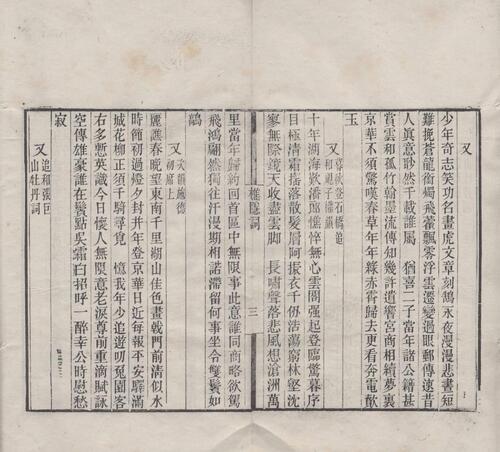 又
少年奇志笑功名畫虎文章刻鵠永夜漫漫悲晝短
難挽蒼龍銜燭飛藿飄零浮雲遷變過眼郵傳速昔
人真意眇然千載誰屬　猶喜二子當年諸公籍甚
賞雲和孤竹翰墨流傳知幾許遺響宮商相續夢裏
京華不須驚嘆春草年年綠赤霄歸去更看奔電歕
玉
又
暮秋登石橋追
和祝子權韻
十年湖海歎潘郎憔悴無心雲閣强起登臨驚暮序
目極清霜搖落散髮層阿振衣千仞浩蕩窮林壑沈
寥無際鏡天收盡雲脚　長嘯聲落悲風想滄洲萬
樵隱詞
三
里當年歸約回首區中無限事此意誰同商略欲駕
飛鴻翩然獨往汗漫期相諾滯留何事坐令雙鬢如
鶴
又
次韻施德
初席上
麗譙春晚望東南千里湖山佳色畫戟門前清似水
時節初過短夕封井年登京華日近每報平安驛滿
城花柳正須千騎尋覓　憶我年少追遊叨兎園客
右多慙英識今日懷人無限意老淚尊前重滴賦詠
空傳雄豪誰在鬢點吳霜白招呼一醉幸公時慰愁
寂
又
追和張巨
山牡丹詞